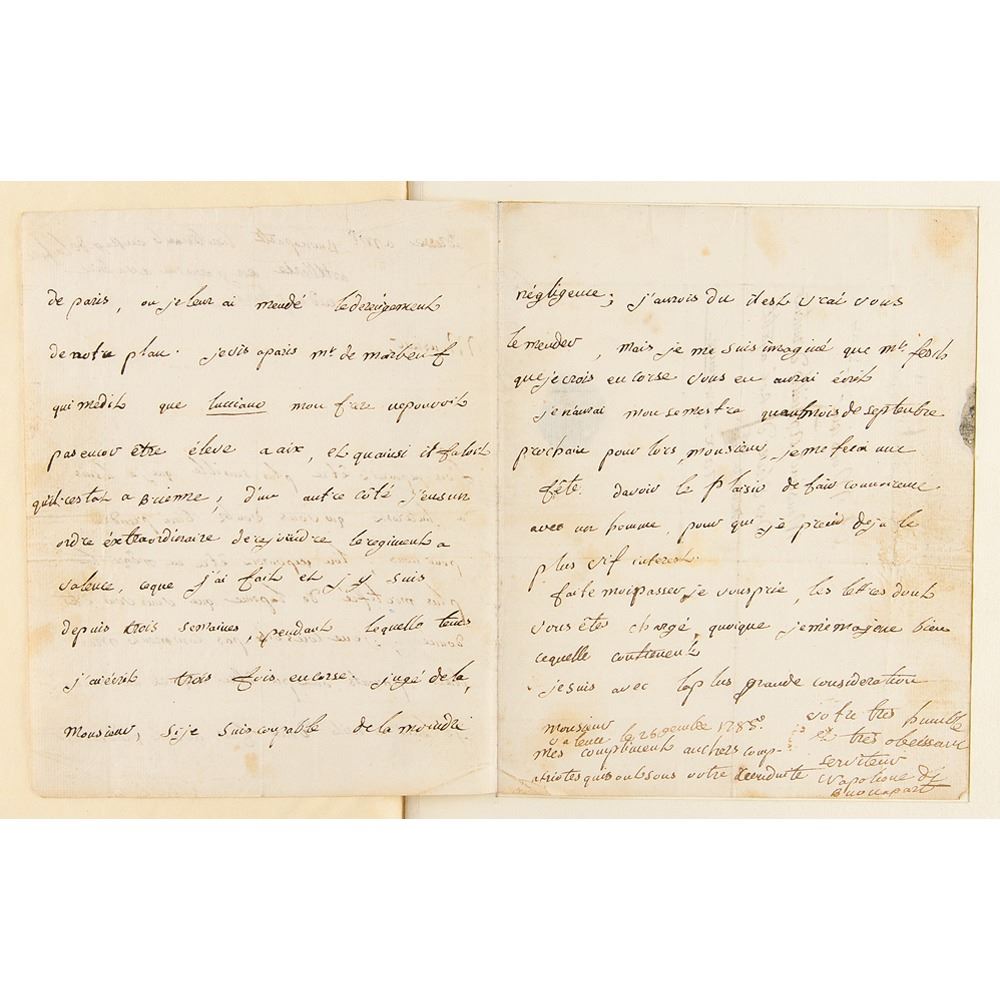 de paris, ou je leur ai mendé le derengement
de notre plan. je vis a paris mr. de marbeuf
qui medit que lucciano mon frere ne pouvoit
pas encor être éleve a aix, et quainsi il faloit
qu'il restat a Brienne; d'un autre côté j'eus un
ordre éxtraordinaire de rejoindre le regiment a
valence, ceque j'ai fait et j'y suis
depuis trois semaines, pendant lequelle tems
j'ai écrit trois fois en corse. jugé de la,
Monsieur, si je suis coupable de la moindre
négligence; j'aurois du il est vrai vous
le mender, mais je me suis imaginé que mr. fesch
que je crois en corse vous en aurai écrit
je n'aurai mon semestre qu'au mois de septenbre
prochain pour lors, monsieur, je me ferai une
fête davoir le plaisir de fair connoirence
avec un homme, pour qui je prend deja le
plus vif interest.
faite moi passer, je vous prie, les lettres dont
vous êtes chargé, quoique je m'emajene bien
cequelle contienent
je suis avec la plus grande consideration
monsieur
valence le 26 1785
mes compliment au chers comp-
atriotes qui sont sous votre
votre très humble
et très obeissant
serviteur
Napolione di
Buonapart